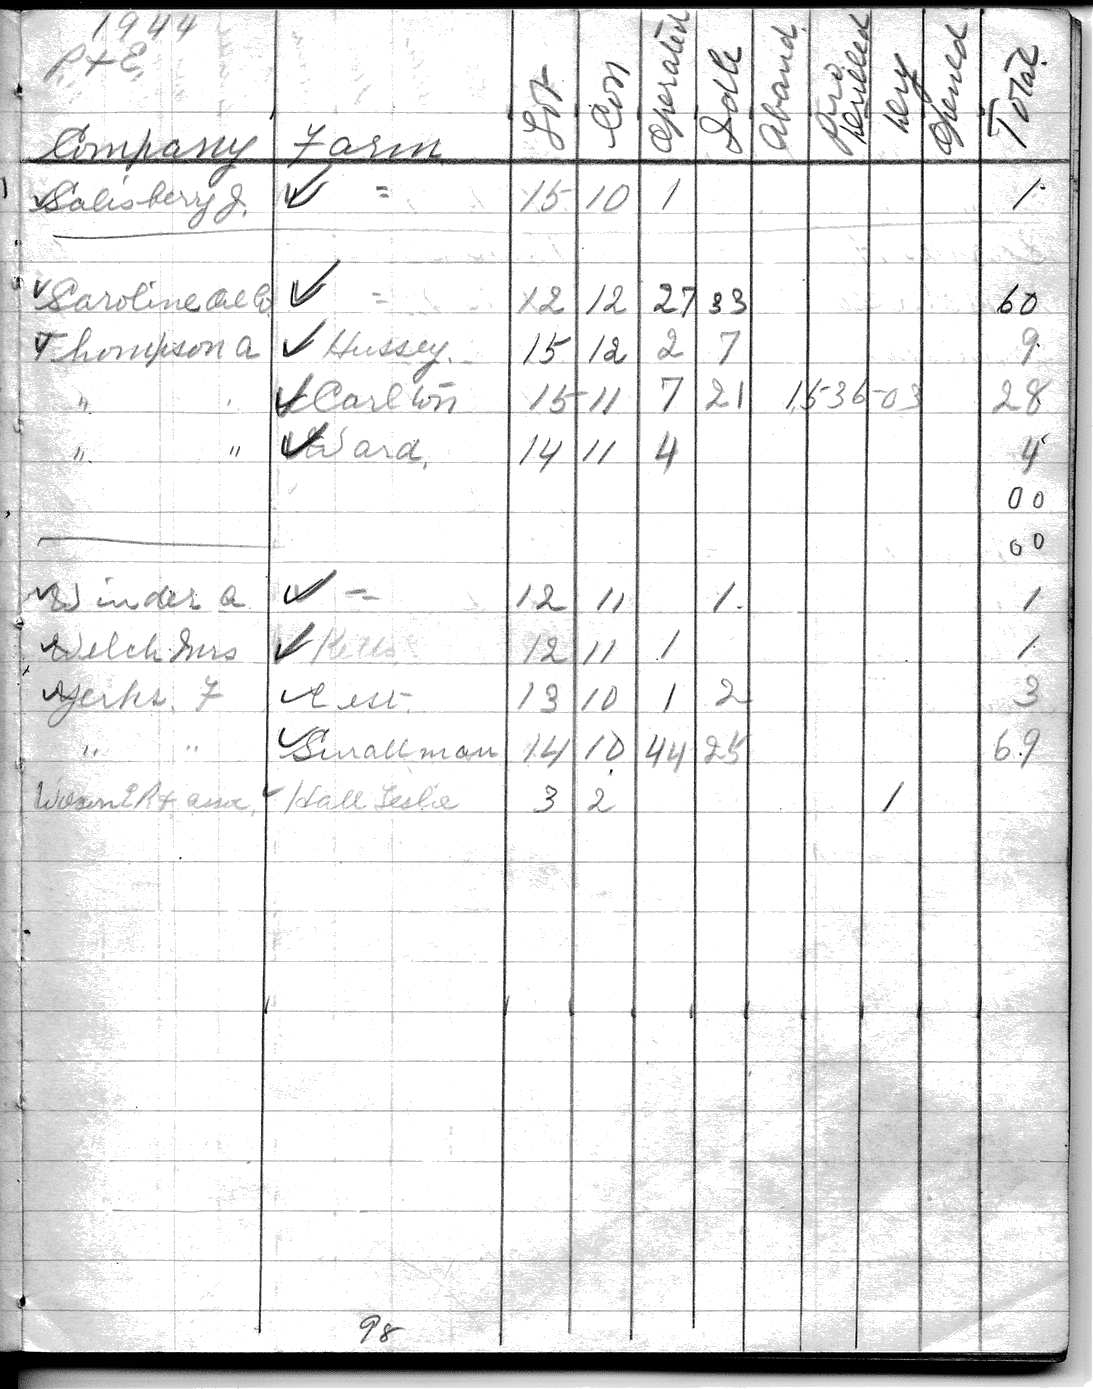 1944
P + E.
Company Farm Lot Con Operated Idle Aband. Drilled Opened Total
Salisberry J. " 15 10 1 1
Caroline Oil Co " 12 12 27 33 60
Thompson A Hussey. 15 12 2 7 9
" " Carlton 15 11 7 21 15-36-03 28
" " Ward. 14 11 4 4
00
00
Winder A " 12 11 1. 1
Welch Mrs 12 11 1 1
Yerks. F East. 13 10 1 2 3
" " Smallman 14 10 44 25 69
Hall Leslie 3 2 1
98